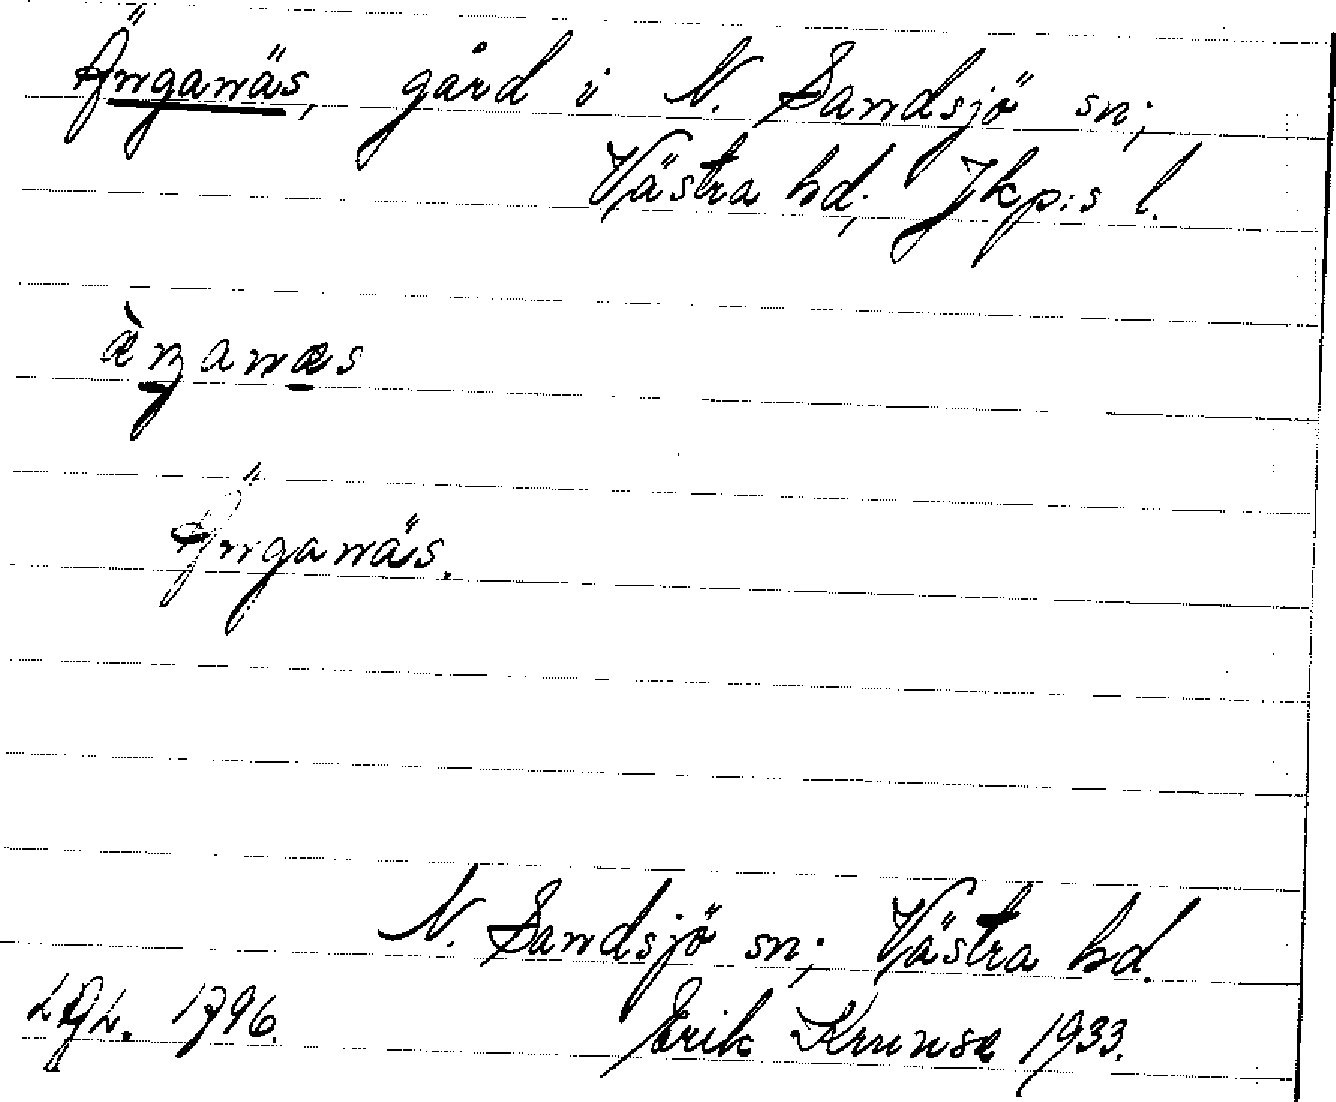 Änganäs, gård i N. Sandsjö sn;
Västra hd; Jkp:s l.
æ̀ŋanæs
Änganäs.
N. Sandsjö sn; Västra hd.
1796. Erik Krunse 1933.